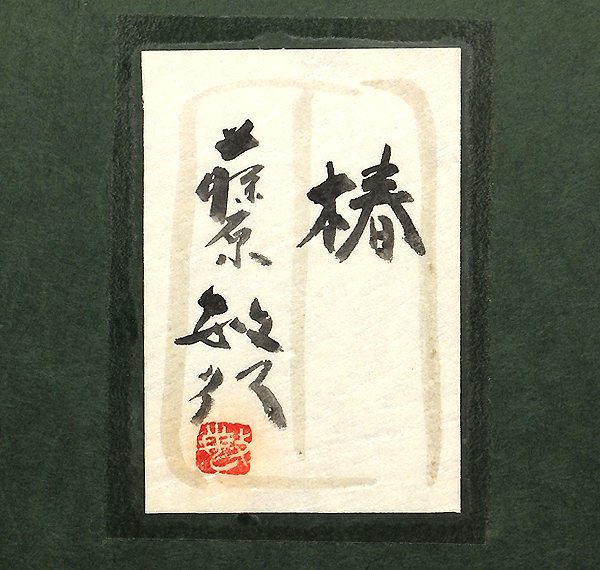 椿
藤原敏行